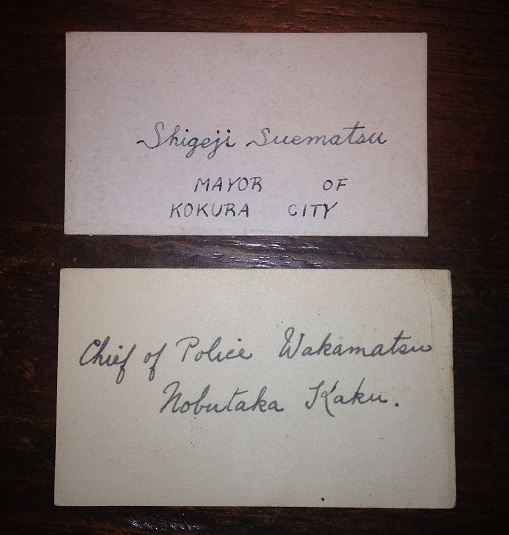 Shigeji Suematsu
MAYOR OF
KOKURA CITY
Chief of Police Wakamatsu
Nobutaka Kaku.